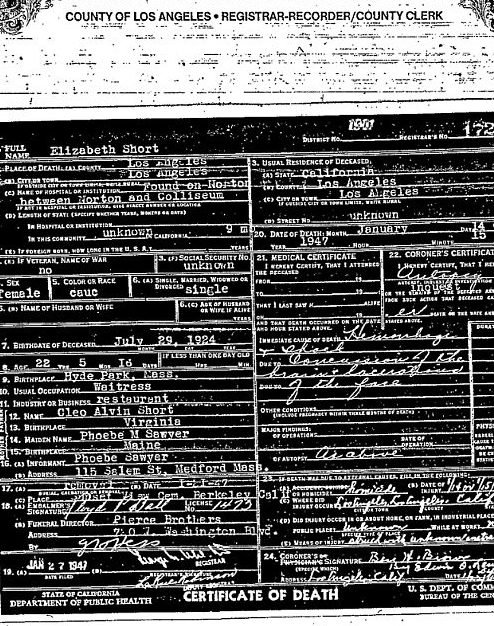 COUNTY OF LOS ANGELES • REGISTRAR-RECORDER/COUNTY CLERK
1901
DISTRICT No.
REGISTRAR'S No. 172
FULL NAME Elizabeth Short
PLACE OF DEATH: (A) COUNTY Los Angeles
(B) CITY OR TOWN Los Angeles
(C) NAME OF HOSPITAL OR INSTITUTION: Found on Norton
between Norton and Colliseum
(D) LENGTH OF STAY: (SPECIFY WHETHER YEARS, MONTHS OR DAYS)
IN HOSPITAL OR INSTITUTION
IN THIS COMMUNITY unknown CALIFORNIA 9 m
(E) IF FOREIGN BORN, HOW LONG IN THE U. S. A.? YEARS
3. USUAL RESIDENCE OF DECEASED:
(A) STATE California
(B) COUNTY Los Angeles
(C) CITY OR TOWN Los Angeles
IF OUTSIDE CITY OR TOWN LIMITS, WRITE RURAL
(D) STREET No. unknown
(E) IF VETERAN, NAME OF WAR no
3. (F) SOCIAL SECURITY No. unknown
20. DATE OF DEATH: MONTH January DAY 14 15
YEAR 1947 HOUR MINUTE
SEX female
5. COLOR OR RACE cauc
6. (A) SINGLE, MARRIED, WIDOWED OR DIVORCED single
6. (B) NAME OF HUSBAND OR WIFE
6. (C) AGE OF HUSBAND OR WIFE IF ALIVE YEARS
7. BIRTHDATE OF DECEASED July 29, 1924
MONTH DAY YEAR
8. AGE 22 YRS 5 MOS 16 DAYS
IF LESS THAN ONE DAY OLD HRS. MIN.
9. BIRTHPLACE Hyde Park, Mass.
10. USUAL OCCUPATION Waitress
11. INDUSTRY OR BUSINESS restaurant
12. NAME Cleo Alvin Short
13. BIRTHPLACE Virginia
14. MAIDEN NAME Phoebe M Sawyer
15. BIRTHPLACE Maine
16. (A) INFORMANT Phoebe Sawyer
(B) ADDRESS 115 Salem St, Medford Mass.
21. MEDICAL CERTIFICATE
I HEREBY CERTIFY, THAT I ATTENDED THE DECEASED
FROM
TO
THAT I LAST SAW H ALIVE
AND THAT DEATH OCCURRED ON THE DATE AND HOUR STATED ABOVE.
22. CORONER'S CERTIFICATE
I HEREBY CERTIFY, THAT I
Inquest
IMMEDIATE CAUSE OF DEATH Hemorrhage
& Shock
DUE TO Concussion of the
brain & lacerations
DUE TO of the face
OTHER CONDITIONS
(INCLUDE PREGNANCY WITHIN THREE MONTHS OF DEATH)
MAJOR FINDINGS:
OF OPERATIONS DATE OF OPERATION
OF AUTOPSY as above
17. (A) removal (B)
(C) PLACE View Cem. Berkeley Cal
18. (A) EMBALMER'S SIGNATURE LICENSE No.
(B) FUNERAL DIRECTOR Pierce Brothers
ADDRESS Washington Blv
BY
19. (A) JAN 27 1947
DATE FILED
REGISTRAR
23. IF DEATH WAS DUE TO EXTERNAL CAUSES, FILL IN THE FOLLOWING:
Homicide (B) DATE OF INJURY
(C) WHERE DID INJURY OCCUR? Los Angeles Los Angeles Calif
(D) DID INJURY OCCUR IN OR ABOUT HOME, OR FARM, IN INDUSTRIAL PLACE
PUBLIC PLACE? unknown WHILE AT WORK?
(E) MEANS OF INJURY
24. CORONER'S
PHYSICIAN'S SIGNATURE Ben H Brown
ADDRESS Los Angeles, Calif DATE
STATE OF CALIFORNIA
DEPARTMENT OF PUBLIC HEALTH
CERTIFICATE OF DEATH
U. S. DEPT. OF COMM
BUREAU OF THE CEN